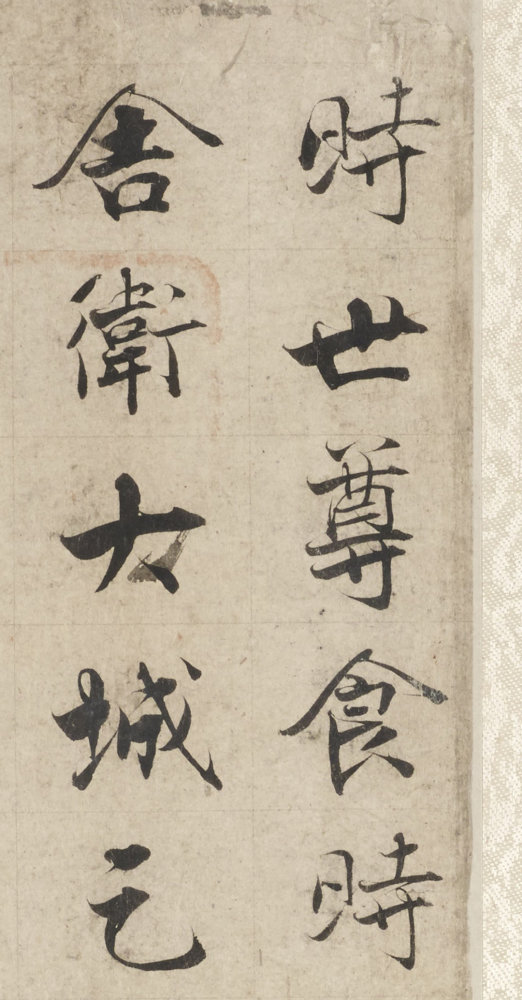 時世尊食時
舍衛大城乞